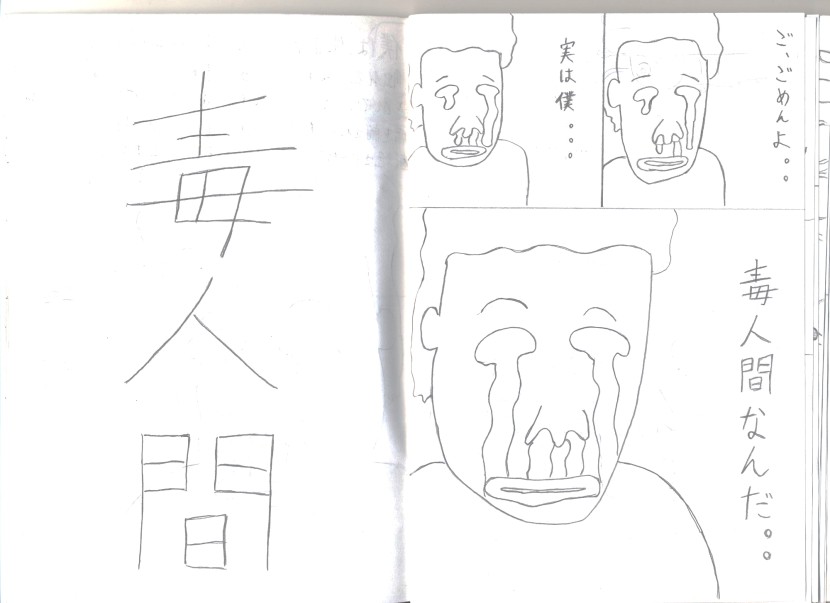 ご、ごめんよ。。
実は僕。。。
毒人間なんだ。。
毒人間